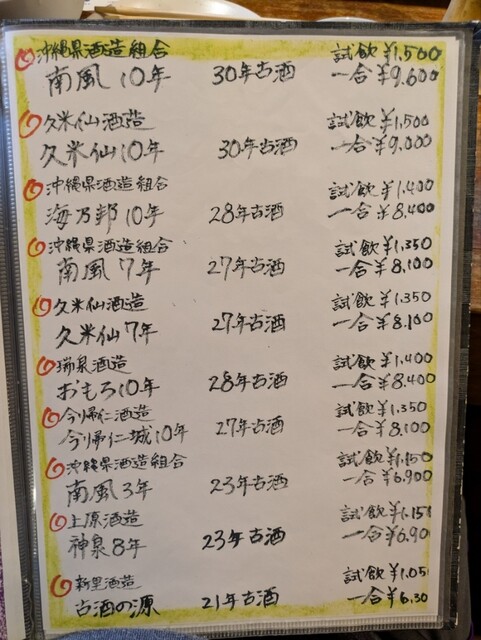 沖縄県酒造組合 試飲¥1,500
南風10年 30年古酒 一合¥9,600
久米仙酒造 試飲¥1,500
久米仙10年 30年古酒 一合¥9,000
沖縄県酒造組合 試飲¥1,400
海乃邦10年 28年古酒 一合¥8,400
沖縄県酒造組合 試飲¥1,350
南風7年 27年古酒 一合¥8,100
久米仙酒造 試飲¥1,350
久米仙7年 27年古酒 一合¥8,100
瑞泉酒造 試飲¥1,400
おもろ10年 28年古酒 一合¥8,400
今帰仁酒造 試飲¥1,350
今帰仁城10年 27年古酒 一合¥8,100
沖縄県酒造組合 試飲¥1,150
南風3年 23年古酒 一合¥6,900
上原酒造 試飲¥1,15
神泉8年 23年古酒 一合¥6,90
新里酒造 試飲¥1,05
古酒の源 21年古酒 一合¥6,30